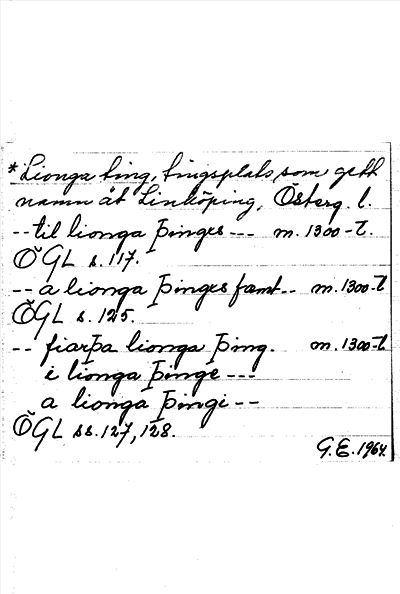 *Lionga ting, tingsplats som gett
namn åt Linköping, Österg. l.
-- til lionga þinges --- m. 1300-t.
ÖGL s. 117.
-- a lionga þinges fæmt -- m. 1300-t
ÖGL s. 125.
-- fiarþa lionga þing. m. 1300-t
i lionga þinge ---
a lionga þingi --
ÖGL ss. 127, 128.
G.E. 1964.